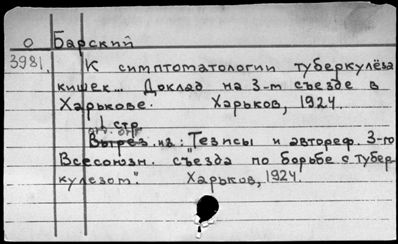 О Барский
3981. К симптоматологии туберкулёза
кишек... Доклад на 3-м съезде в
Харькове. Харьков, 1924.
1 стр.
отд. отт.
Вырез. из: "Тезисы и автореф. 3-го
Всесоюзн. съезда по борьбе с тубер-
кулезом". Харьков, 1924.